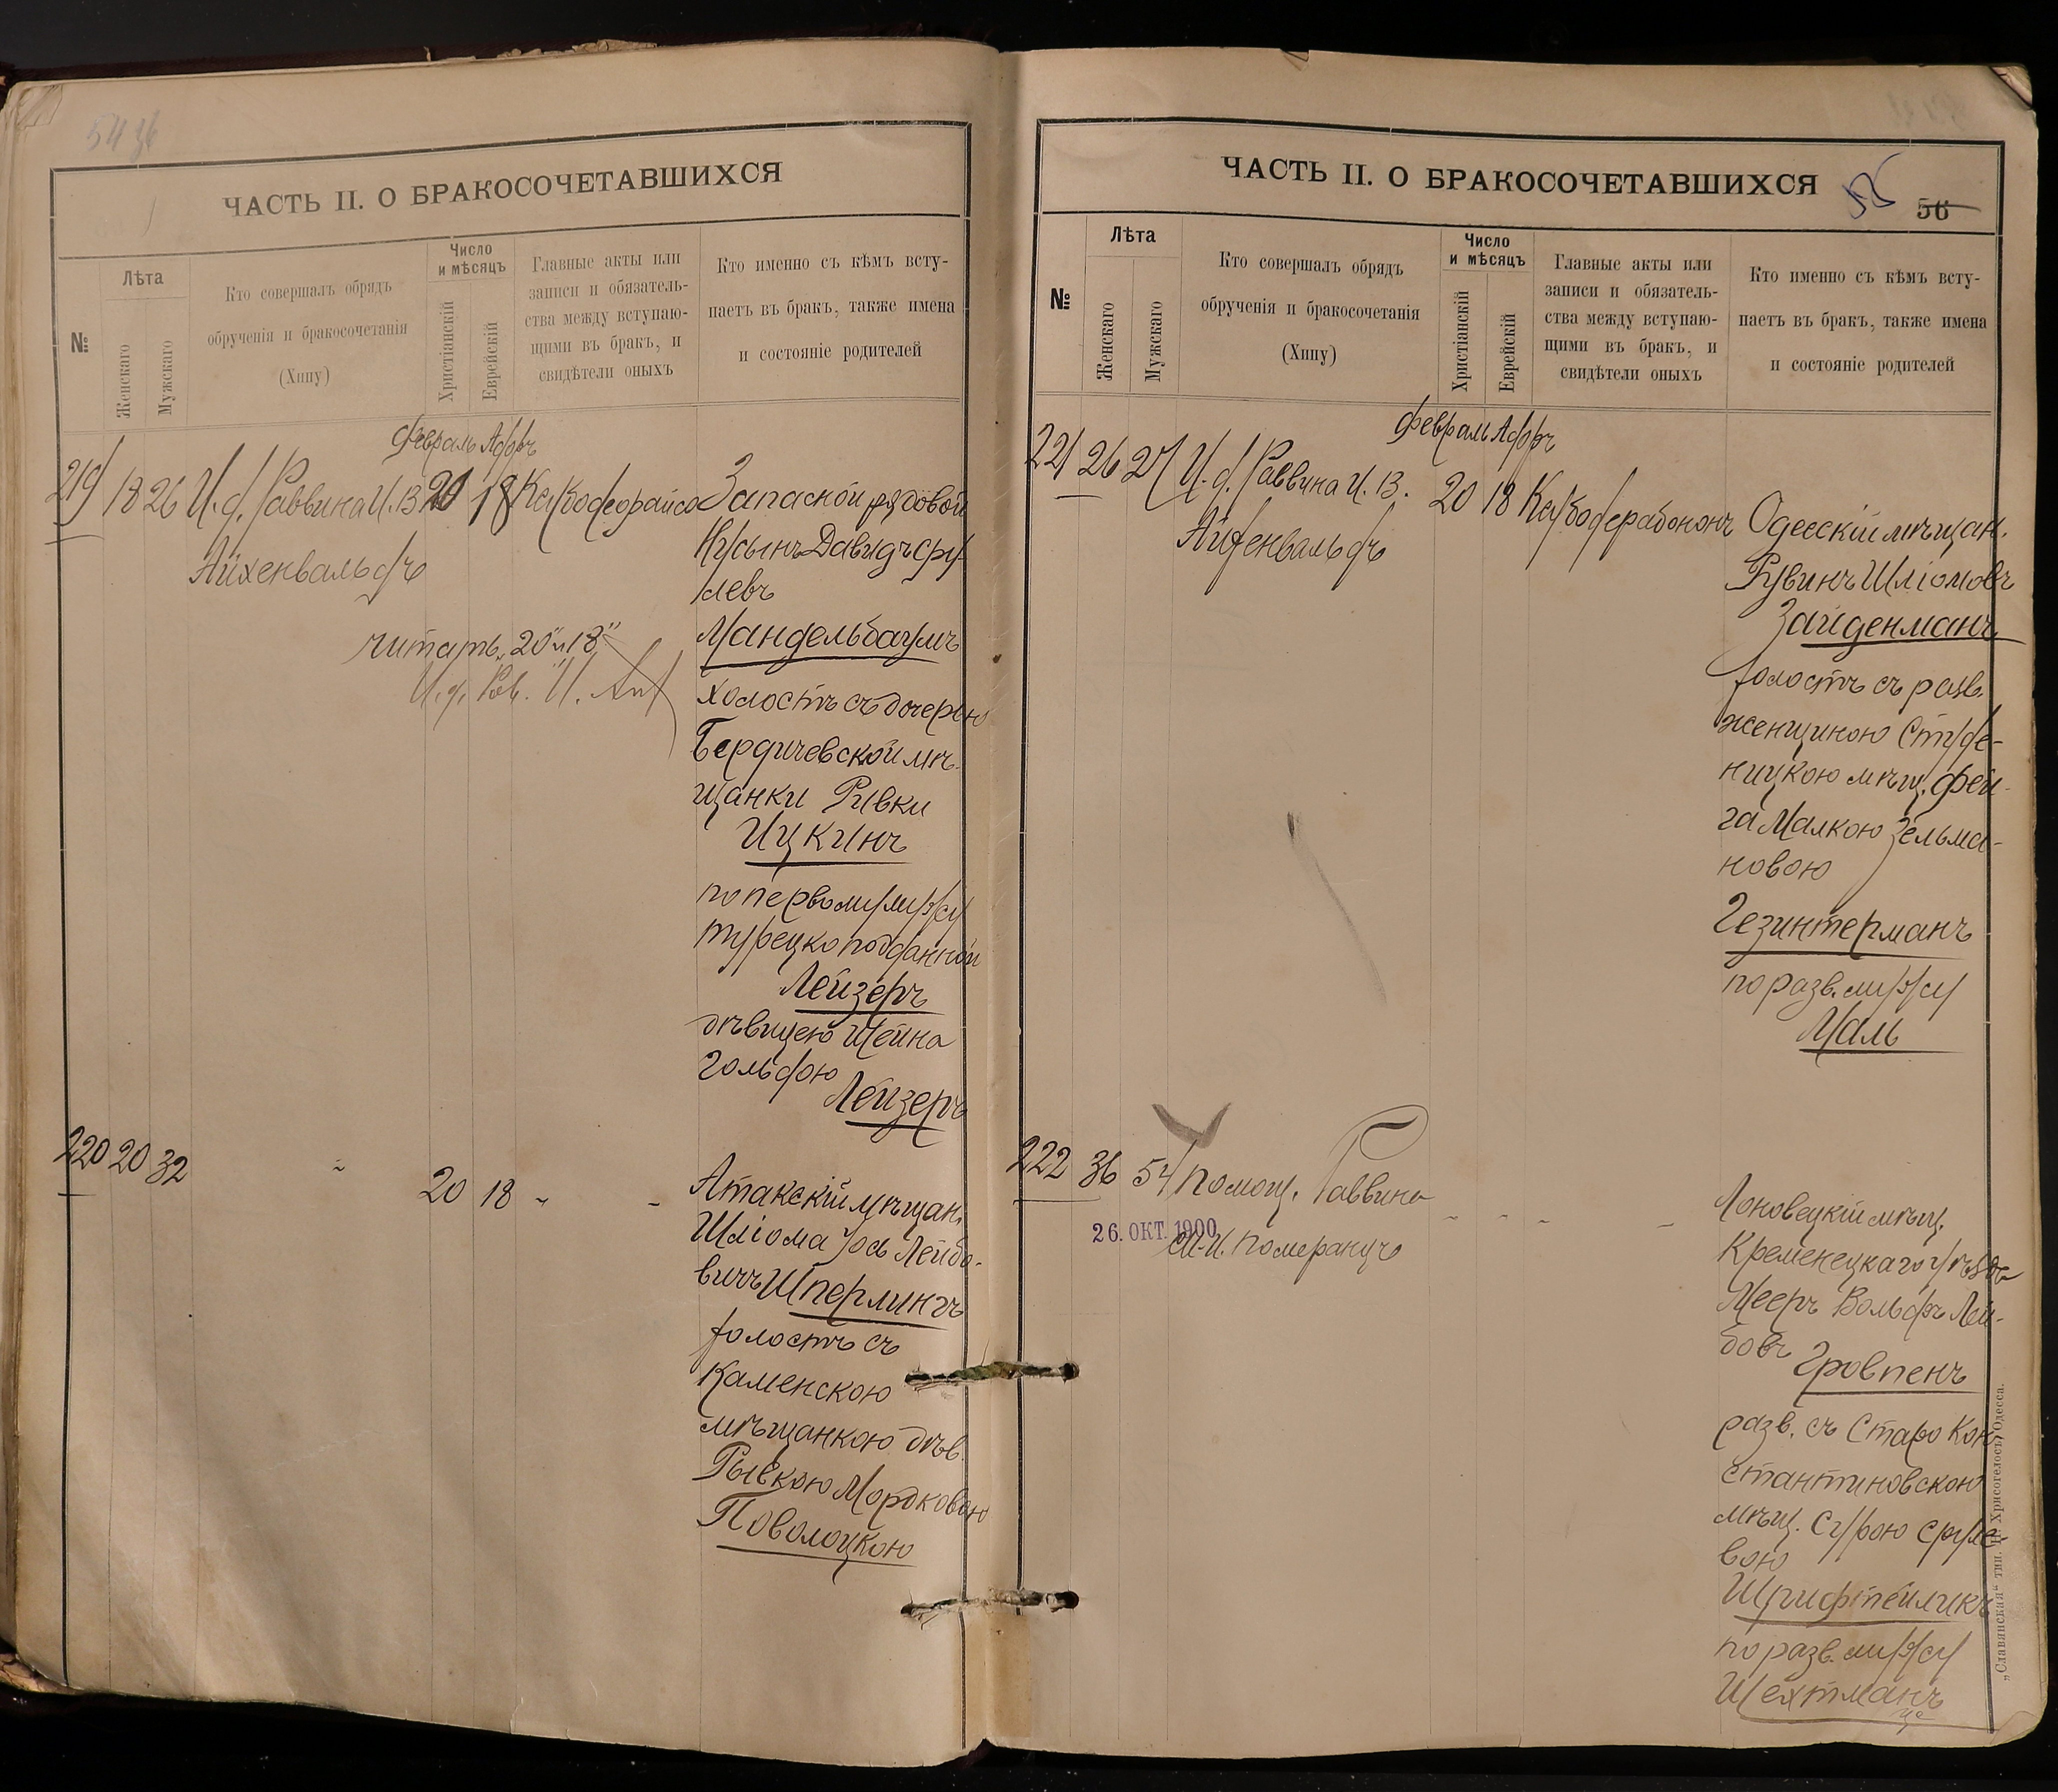 54 36
ЧАСТЬ II. О БРАКОСОЧЕТАВШИХСЯ
№
Лѣта
Женскаго
Мужскаго
Кто совершалъ обрядъ
обрученія и бракосочетанія
(Хипу)
Число
и мѣсяцъ
Христіанскій
Еврейскій
Главные акты или
записи и обязатель-
ства между вступаю-
щими въ бракъ, и
свидѣтели оныхъ
Кто именно съ кѣмъ всту-
паетъ въ бракъ, также имена
и состояніе родителей
Февраль Адаръ
219 18 26 И. д. Раввина И. В. 20 18
Айхенвальдъ
читать „20 и 18“
И. д. Рав. И.
Запасной рядовой
Нусынъ Давидъ Сру
левъ
Мандельбаумъ
холостъ съ дочерью
Бердичевской мѣ-
щанки Рывки
Ицкинъ
по первому мужу
турецко подданной
Лейзеръ
дѣвицею Шейна
Гольдою
Лейзеръ
220 20 32 " 20 18 " "
Атакскій мѣщан.
Шліома Іось Лейбо-
вичъ Шперлингъ
холостъ съ
Каменскою
мѣщанкою дѣв.
Рывкою Мордковою
Поволоцкою
ЧАСТЬ II. О БРАКОСОЧЕТАВШИХСЯ
55 56
№
Лѣта
Женскаго
Мужскаго
Кто совершалъ обрядъ
обрученія и бракосочетанія
(Хипу)
Число
и мѣсяцъ
Христіанскій
Еврейскій
Главные акты или
записи и обязатель-
ства между вступаю-
щими въ бракъ, и
свидѣтели оныхъ
Кто именно съ кѣмъ всту-
паетъ въ бракъ, также имена
и состояніе родителей
Февраль Адаръ
221 26 27 И. д. Раввина И. В. 20 18
Айхенвальдъ
Одесскій мѣщан.
Рувинъ Шліомовъ
Зайденманъ
холостъ съ разв.
женщиною Студе-
ницкою мѣщ. Фей-
га Малкою Зельма-
новою
Гезинтерманъ
по разв. мужу
Маль
222 36 54 Помощ. Раввина " " " "
26. ОКТ. 1900
Померанцъ
мѣщ.
Кременецкаго уѣзда
Мееръ Вольфъ Лей-
бовъ Гровпенъ
разв. съ Старо Кон
стантиновскою
мѣщ. Сурою Сруле-
вою
Шрифтейликъ
по разв. мужу
Шехтманъ
„Славянская“ тип. Н. Хрисогелосъ, Одесса.